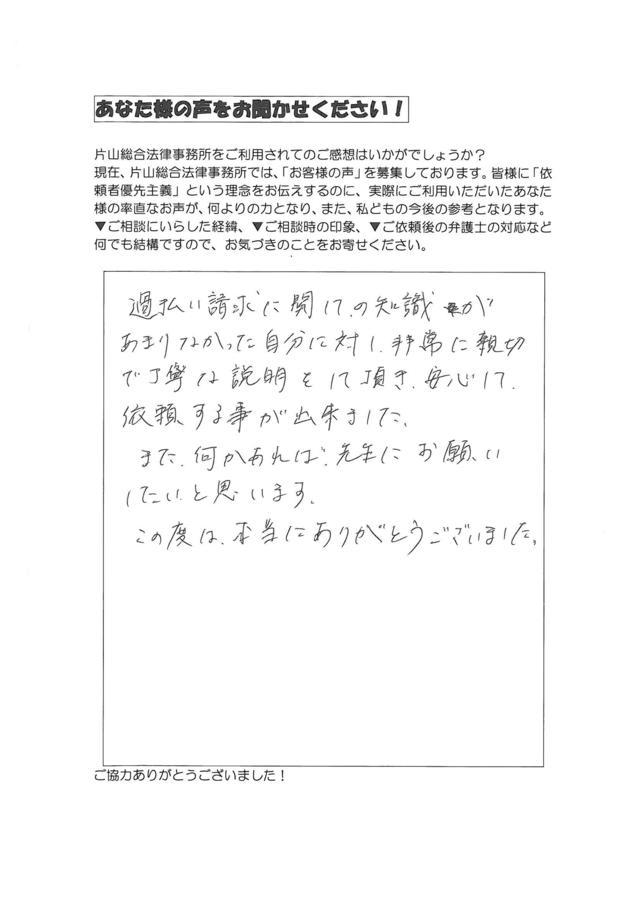 あなた様の声をお聞かせください！
片山総合法律事務所をご利用されてのご感想はいかがでしょうか？
現在、片山総合法律事務所では、「お客様の声」を募集しております。皆様に「依
頼者優先主義」という理念をお伝えするのに、実際にご利用いただいたあなた
様の率直なお声が、何よりの力となり、また、私どもの今後の参考となります。
▼ご相談にいらした経緯、▼ご相談時の印象、▼ご依頼後の弁護士の対応など
何でも結構ですので、お気づきのことをお寄せください。
過払い請求に関しての知識が
あまりなかった自分に対し、非常に親切
で丁寧な説明をして頂き、安心して、
依頼する事が出来ました。
また、何かあれば、先生にお願い
したいと思います。
この度は、本当にありがとうございました。
ご協力ありがとうございました！